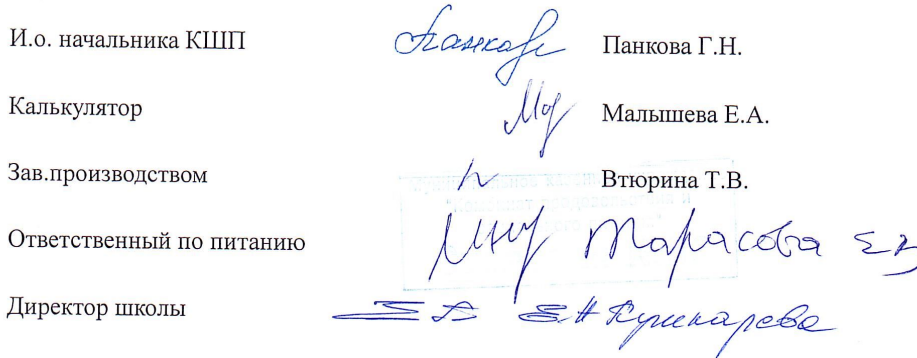 И.о. начальника КШП Панкова Панкова Г.Н.
Калькулятор Малышева Е.А.
Зав.производством Втюрина Т.В.
Ответственный по питанию Тарасова
Директор школы Пушкарева